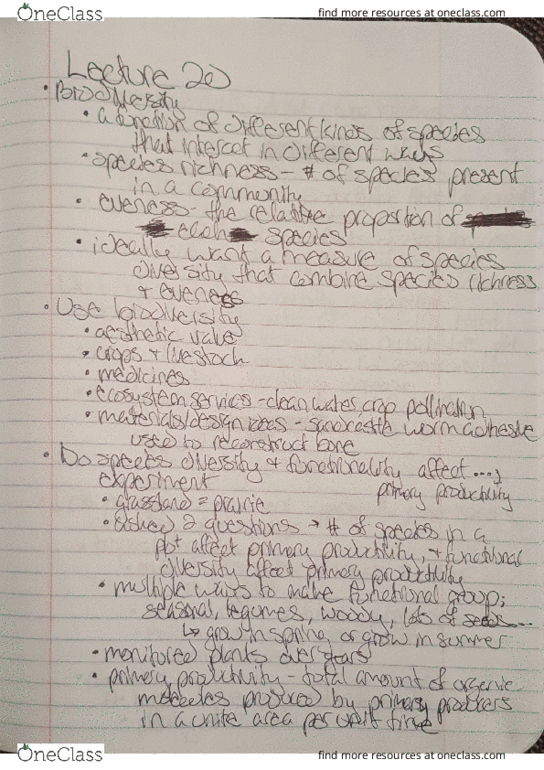 OneClass
find more resources at oneclass.com
Lecture 20
• Biodiversity
• a function of different kinds of species
that interact in different ways
• species richness - # of species present
in a community
• eveness - the relative proportion of
each species
• ideally want a measure of species
diversity that combine species richness
+ eveness
• Use biodiversity
• aesthetic value
• crops + livestock
• medicines
• ecosystem services - clean water, crop pollination
• materials/design ideas - sandcastle worm adhesive
used to reconstruct bone
• Do species diversity + functionality affect ....,
experiment primary productivity
• grassland = prairie
• 2 questions → # of species in a
plot affect primary productivity, + functional
diversity affect primary productivity
• multiple ways to make functional group;
seasonal, legumes, woody, lots of seeds...
↳ grow in spring or grow in summer
• monitored plants over years
• primary productivity - total amount of organic
produced by primary producers
in a unite area per unit time
OneClass
find more resources at oneclass.com